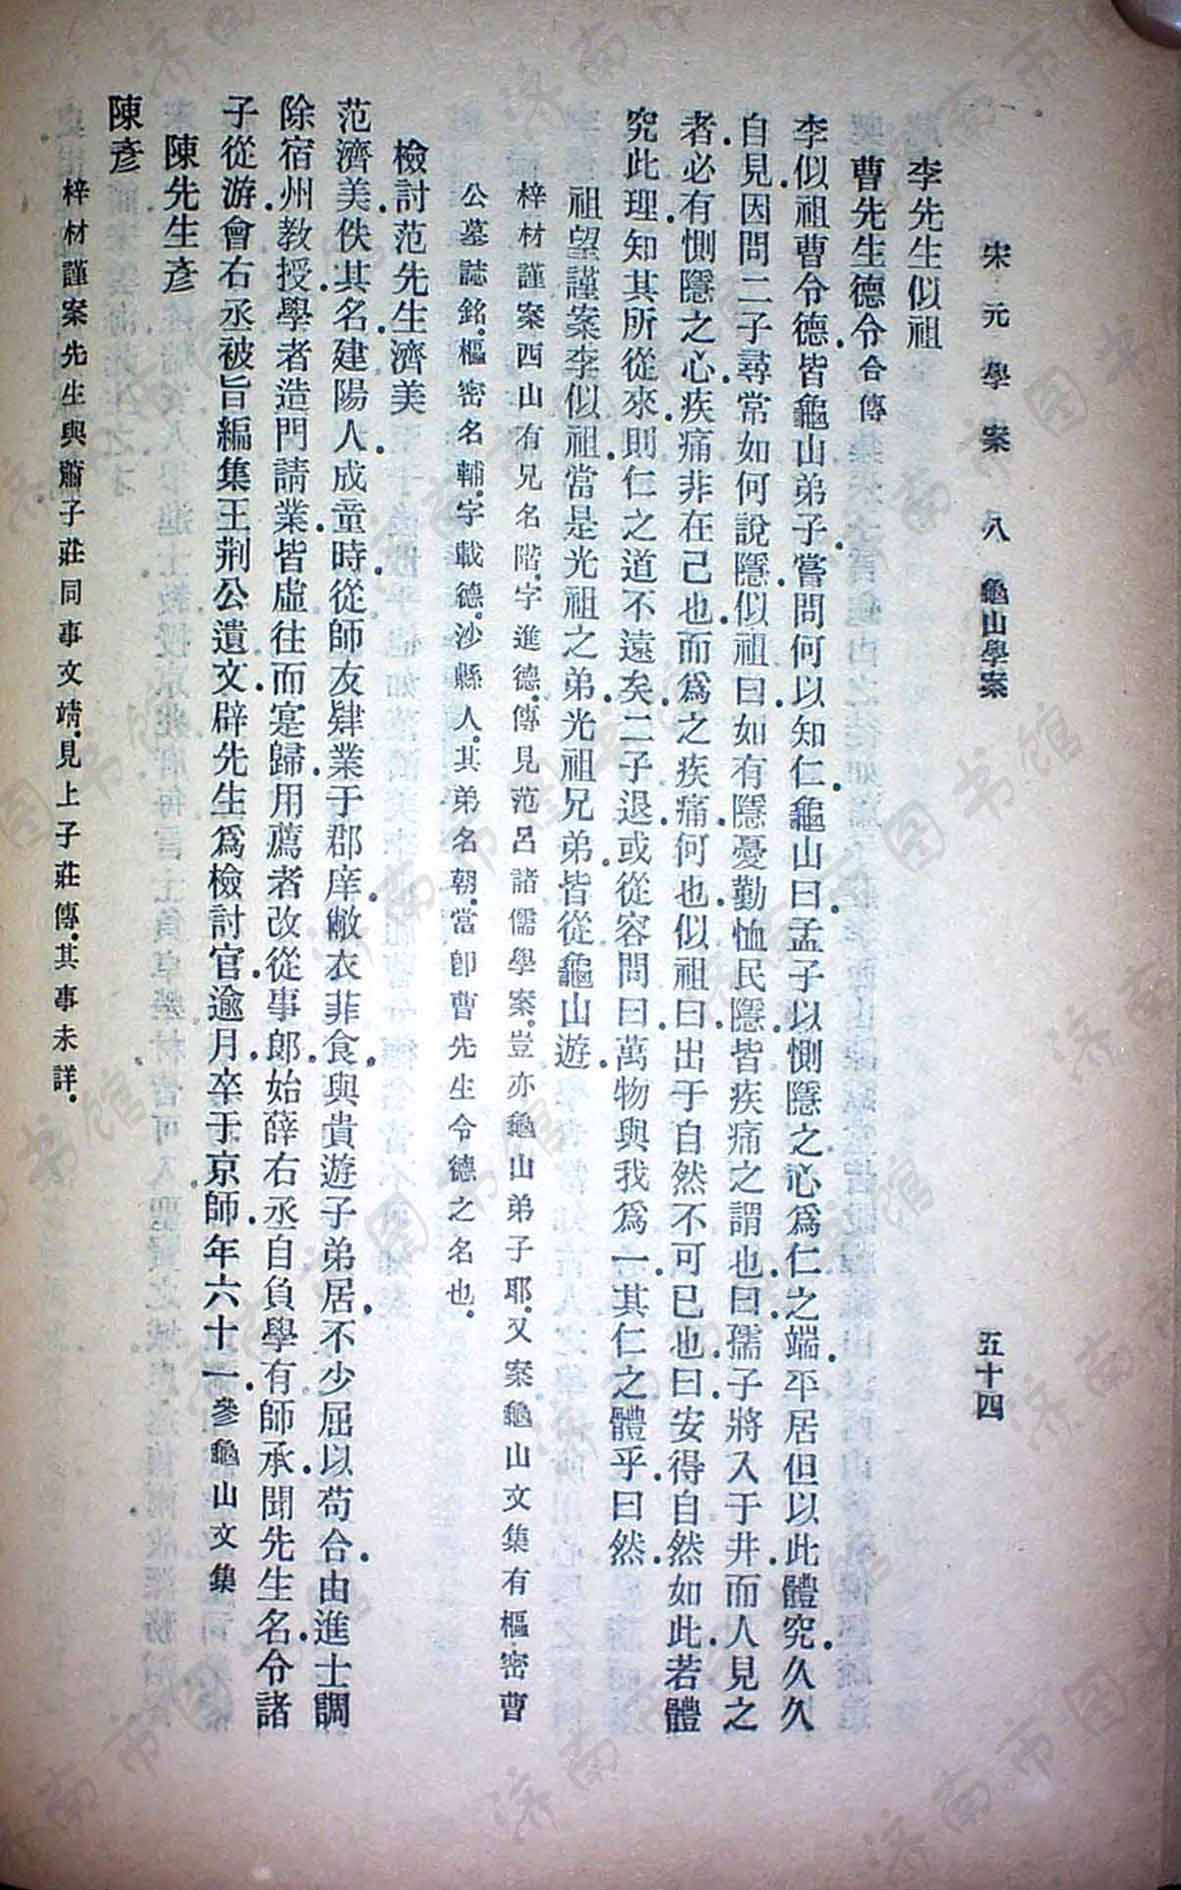 宋元學案 八 龜山學案 五十四
李先生似祖
曹先生德令合傳
李似祖曹令德皆龜山弟子嘗問何以知仁龜山曰孟子以惻隱之心爲仁之端平居但以此體究久久
自見因問二子尋常如何說隱似祖曰如有隱憂勤恤民隱皆疾痛之謂也曰孺子將入于井而人見之
者必有惻隱之心疾痛非在己也而爲之疾痛何也似祖曰出于自然不可已也曰安得自然如此若體
究此理知其所從來則仁之道不遠矣二子退或從容問曰萬物與我爲一其仁之體乎曰然
祖望謹案李似祖當是光祖之弟光祖兄弟皆從龜山遊
梓材謹案西山有兄名階字進德傳見范呂諸儒學案豈亦龜山弟子耶又案龜山文集有樞密曹
公墓誌銘樞密名輔字載德沙縣人其弟名朝當卽曹先生令德之名也
檢討范先生濟美
范濟美佚其名建陽人成童時從師友肄業于郡庠敝衣菲食與貴遊子弟居不少屈以苟合由進士調
除宿州教授學者造門請業皆虛往而寔歸用薦者改從事郞始薛右丞自負學有師承聞先生名令諸
子從游會右丞被旨編集王荆公遺文辟先生爲檢討官逾月卒于京師年六十一參龜山文集
陳先生彥
陳彥
梓材謹案先生與蕭子莊同事文靖見上子莊傳其事未詳
济南市图书馆